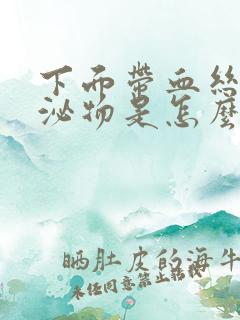 下面带血丝
泌物是怎么
晒肚皮的海牛
未经同意禁止转载